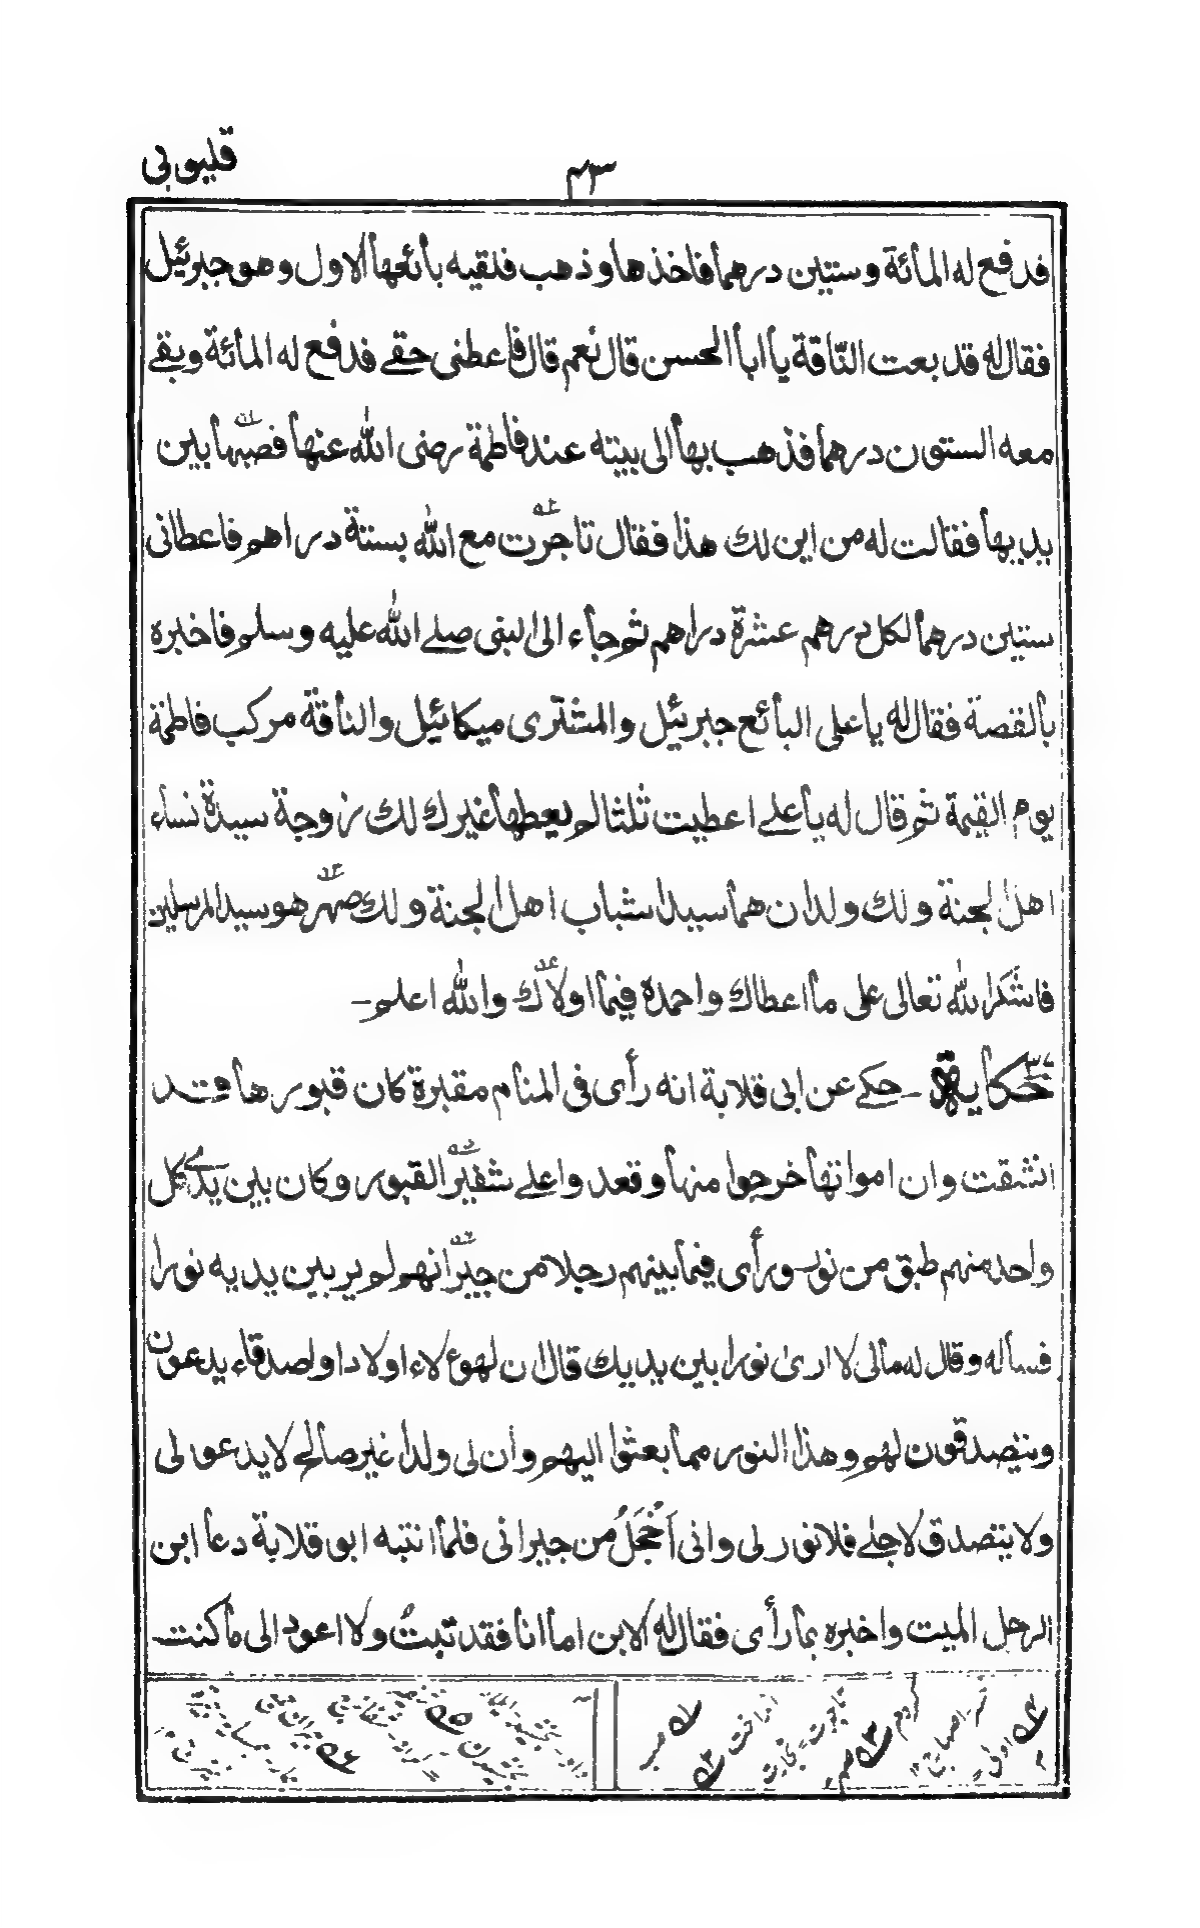 قليوبى
٤٣
فدفع له المائة وستين درهما فاخذها وذهب فلقيه بائعها الاول وهو جبرئيل
فقال له قد بعت النّاقة يا ابا الحسن قال نعم قال فاعطنى حقے فدفع له المائة وبقے
معه الستون درهما فذهب بها الى بيته عند فاطمة رضى الله عنها فصبّها بين
يديها فقالت له من اين لك هذا فقال تاجرت مع الله بستة دراهم فاعطانى
ستين درهما لكل درهم عشرة دراهم ثم جاء الى النبى صلے الله عليه وسلم فاخبره
بالقصة فقال له يا على البائع جبرئيل والمشترى ميكائيل والناقة مركب فاطمة
يوم القيمة ثم قال له يا علے اعطيت ثلثا لم يعطها غيرك لك زوجة سيدة نساء
اهل الجنة ولك ولدان هما سيدا شباب اهل الجنة ولك صهر هو سيد المرسلين
فاشكر الله تعالى على ما اعطاك واحمده فيما اولاك والله اعلم -
حكاية - حكے عن ابى قلابة انه رأى فى المنام مقبرة كان قبورها قد
انشقت وان امواتها خرجوا منها وقعدوا علے شفير القبور وكان بين يدے كل
واحد منهم طبق من نور ورأى فيما بينهم رجلا من جيرانهم لم ير بين يديه نورا
فساله وقال له مالى لا ارى نورا بين يديك قال ان لهؤلاء اولادا واصدقاء يدعون
ويتصدقون لهم وهذا النور مما بعثوا اليهم وان لى ولدا غير صالح لا يدعو لى
ولا يتصدق لاجلے فلا نور لى وانى اَخْجَلُ من جيرانى فلما انتبه ابو قلابة دعا ابن
الرجل الميت واخبره بما رأى فقال له الابن اما انا فقد تبتُ ولا اعود الى ما كنت